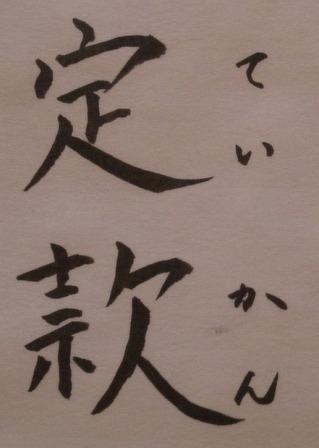 定款
ていかん